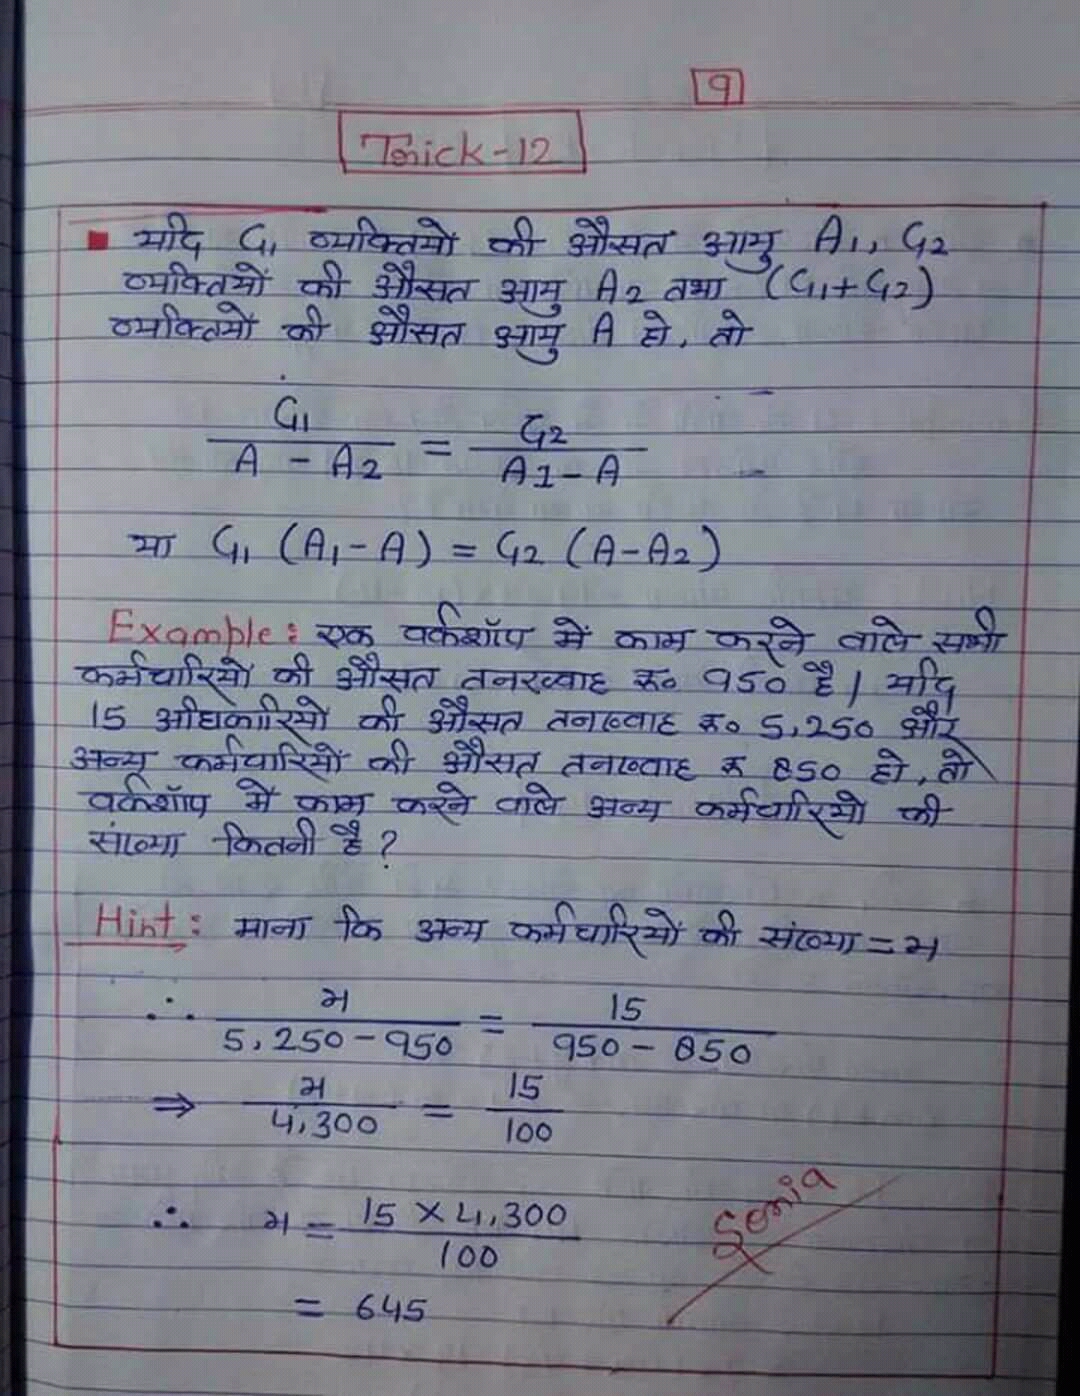 9
Trick-12
यदि G1 व्यक्तियों की औसत आयु A1, G2
व्यक्तियों की औसत आयु A2 तथा (G1+G2)
व्यक्तियों की औसत आयु A हो, तो
G1 / A - A2 = G2 / A1 - A
या G1 (A1 - A) = G2 (A-A2)
Example: एक वर्कशॉप में काम करने वाले सभी
कर्मचारियों की औसत तनख्वाह रू० 950 है। यदि
15 अधिकारियों की औसत तनख्वाह रू० 5,250 और
अन्य कर्मचारियों की औसत तनख्वाह रू 850 हो, तो
वर्कशॉप में काम करने वाले अन्य कर्मचारियों की
संख्या कितनी है?
Hint: माना कि अन्य कर्मचारियों की संख्या = x
∴ x / 5,250-950 = 15 / 950 - 850
⇒ x / 4,300 = 15 / 100
∴ x = 15 × 4,300 / 100
= 645
Sonia